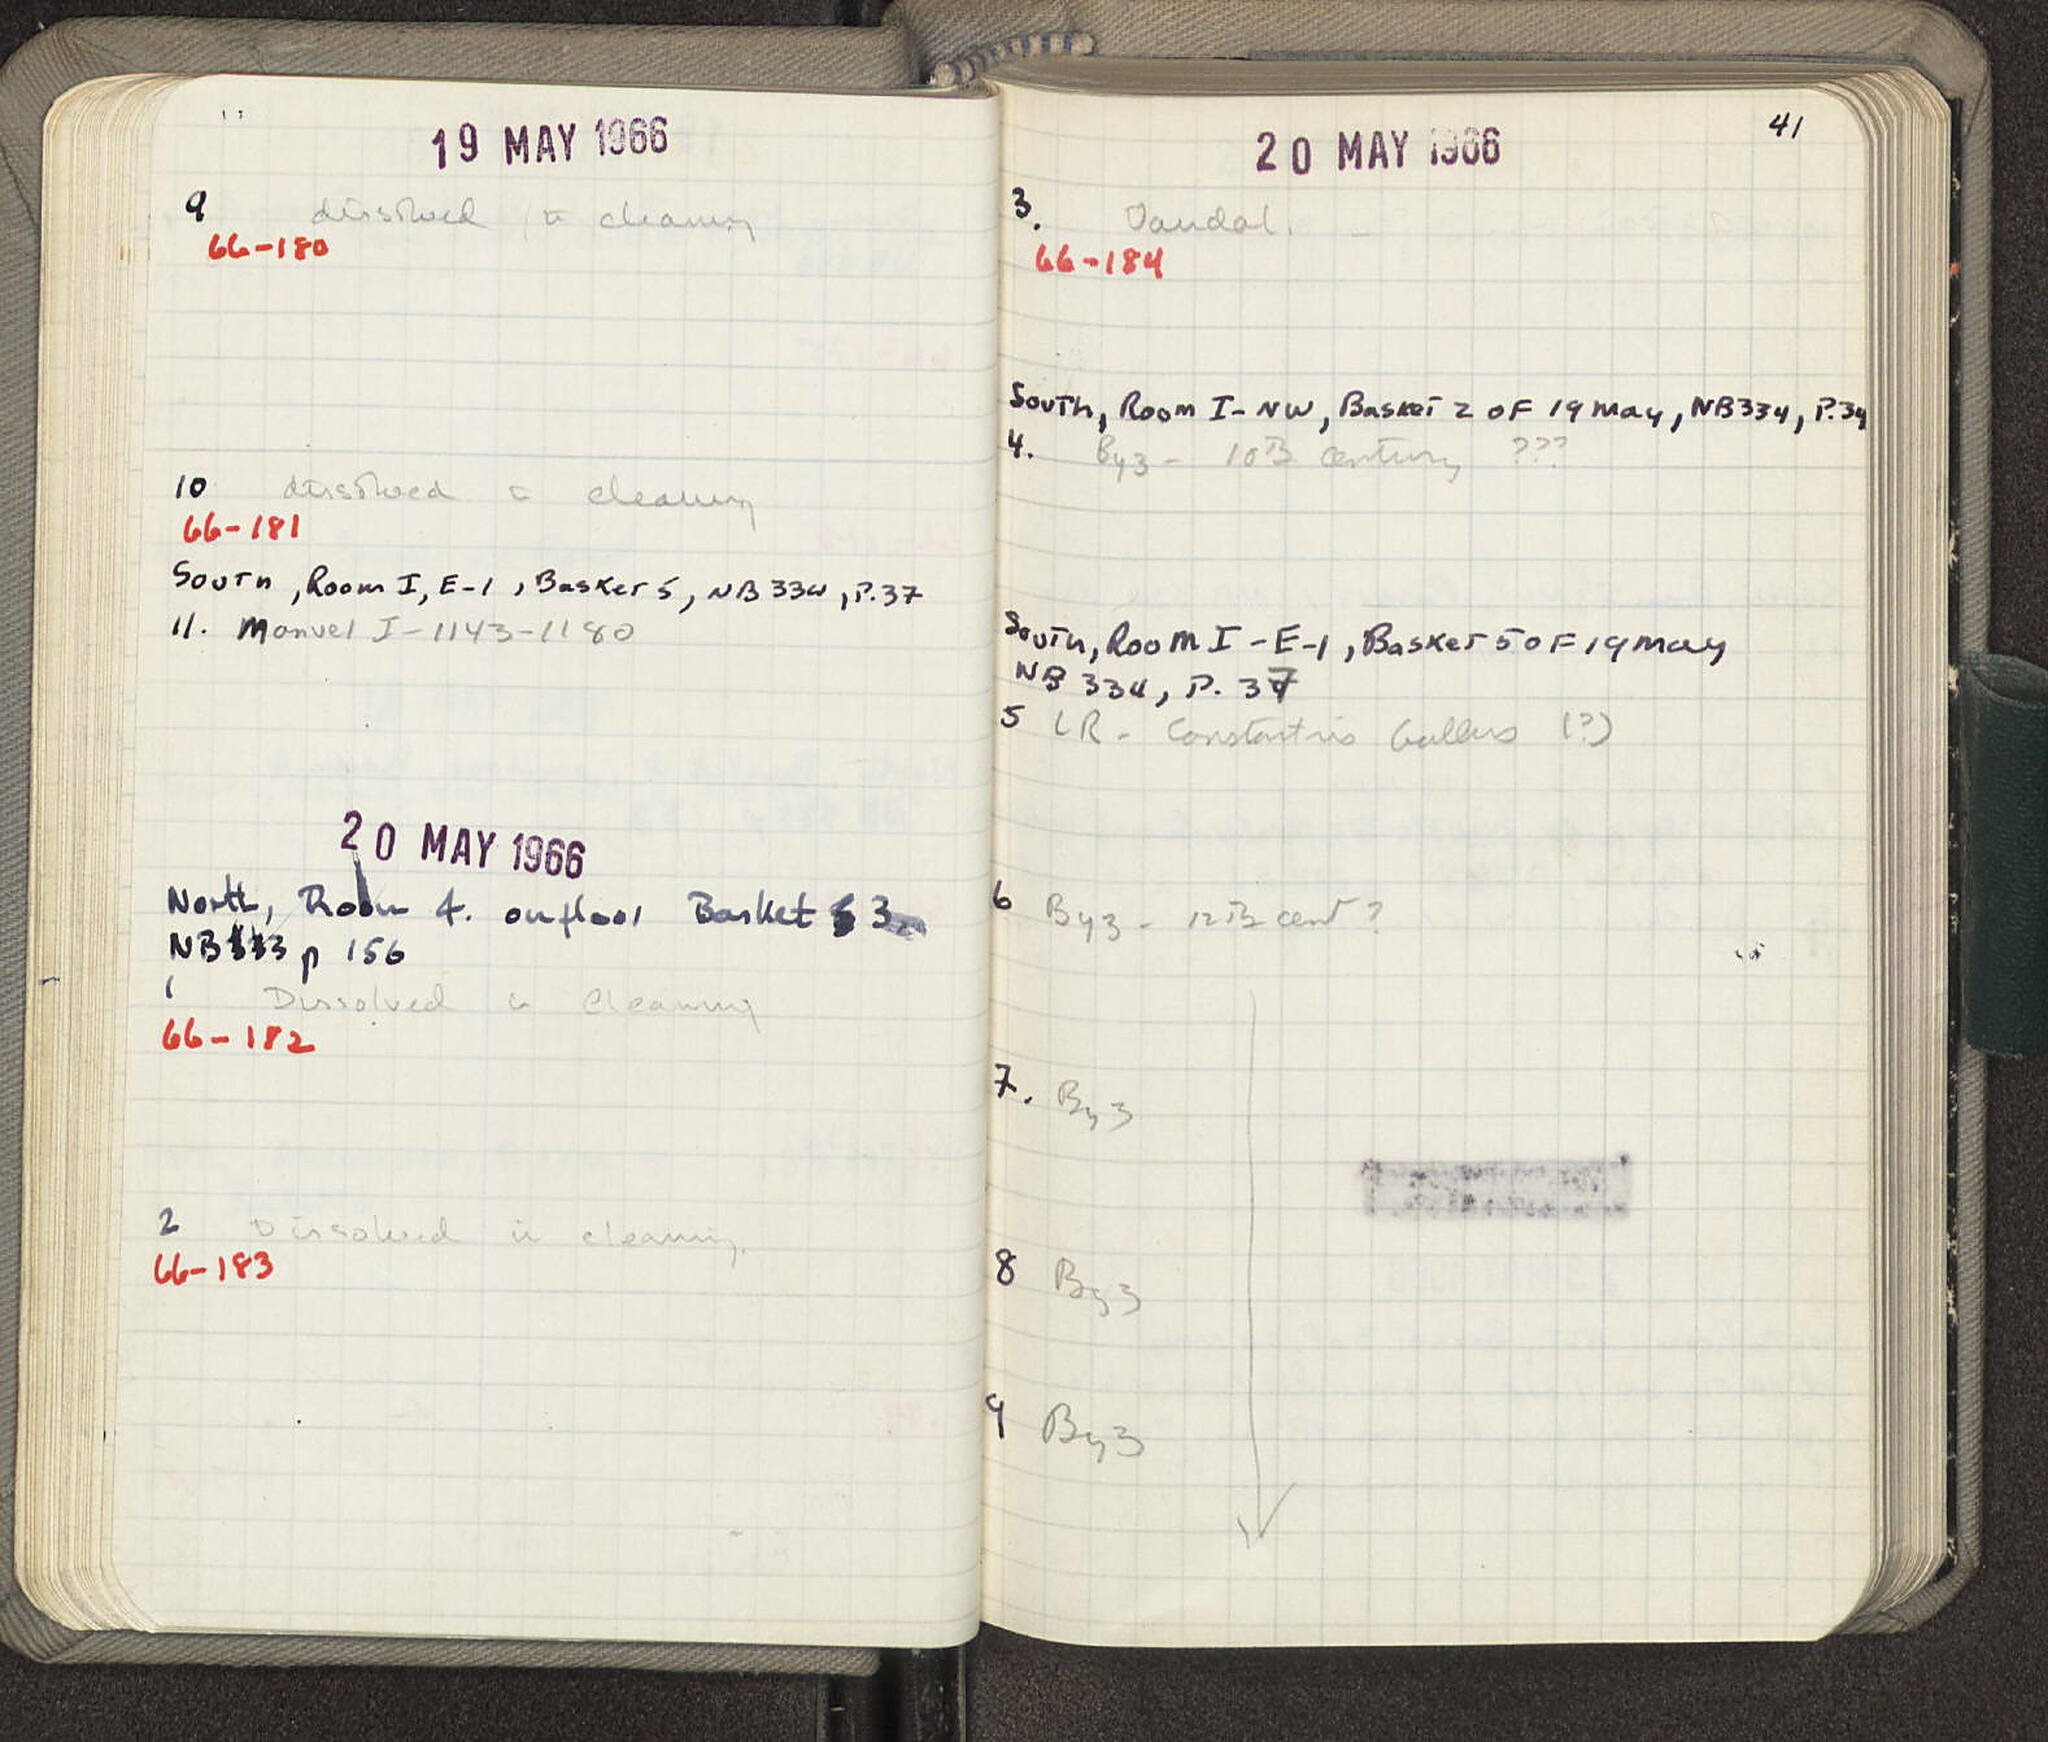 19 MAY 1966
9 dissolved in cleaning
66-180
10 dissolved in cleaning
66-181
South, Room I, E-1, Basket 5, NB 334, P. 37
11. Manuel I - 1143-1180
20 MAY 1966
North, Room 4. on floor Basket 3
NB 333 p 156
1 Dissolved in Cleaning
66-182
2 Dissolved in cleaning.
66-183
41
20 MAY 1966
3. Vandal.
66-184
South, Room I-NW, Basket 2 OF 19 May, NB 334, P. 34
4. Byz - 10th century ???
South, Room I-E-1, Basket 5 OF 19 May
NB 334, P. 37
5 LR - Constantius Gallus (?)
6 Byz - 12th cent ?
7. Byz
8 Byz
9 Byz